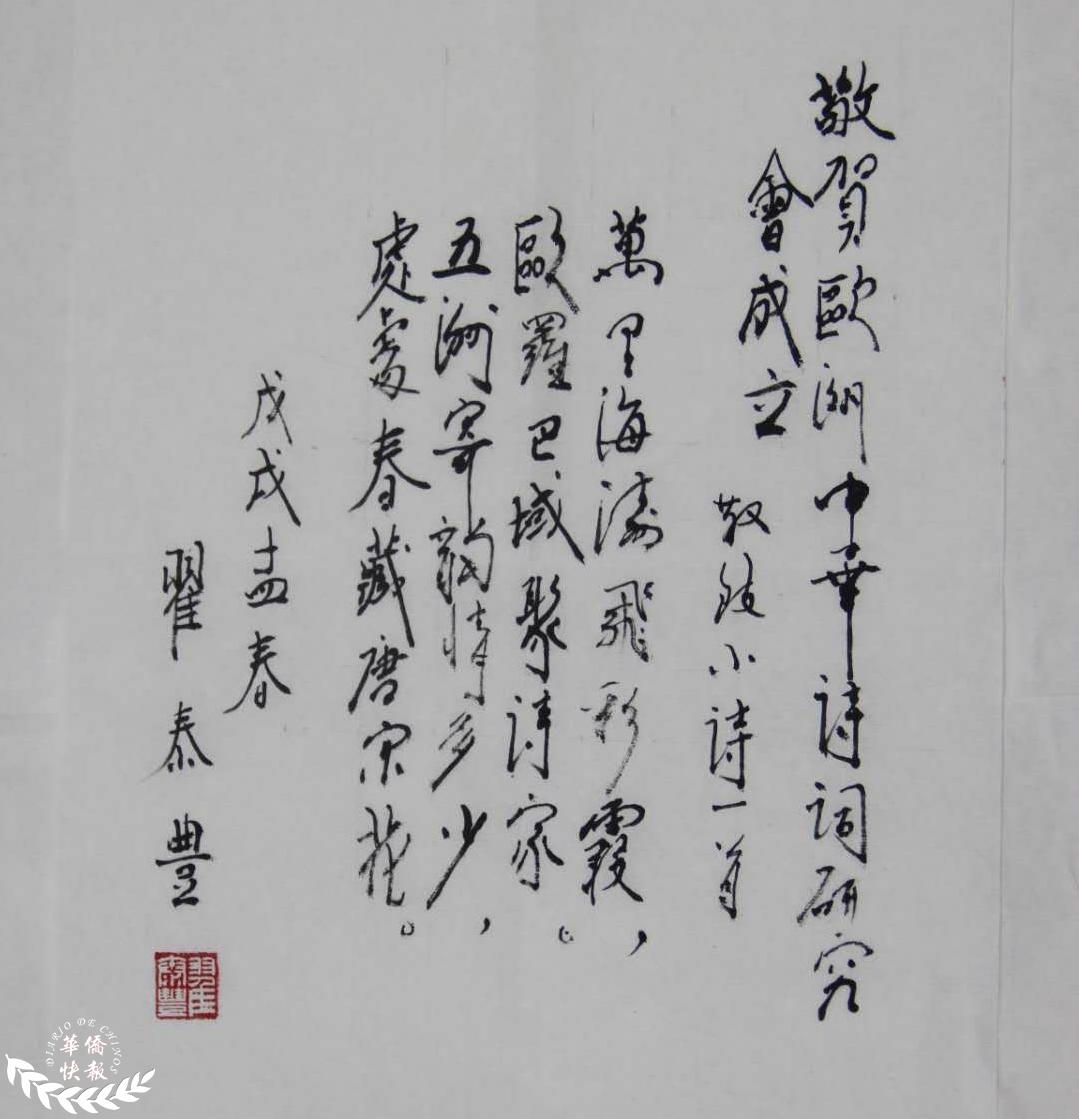 敬賀歐洲中華詩詞研究
會成立
敬緻小詩一首
萬里海濤飛彩霞，
歐羅巴域聚詩家。
五洲寄韻情多少，
處處春藏唐宋花。
戊戌孟春
翟泰豐
翟泰豐
DIARIO DE CHINOS
華僑
快報